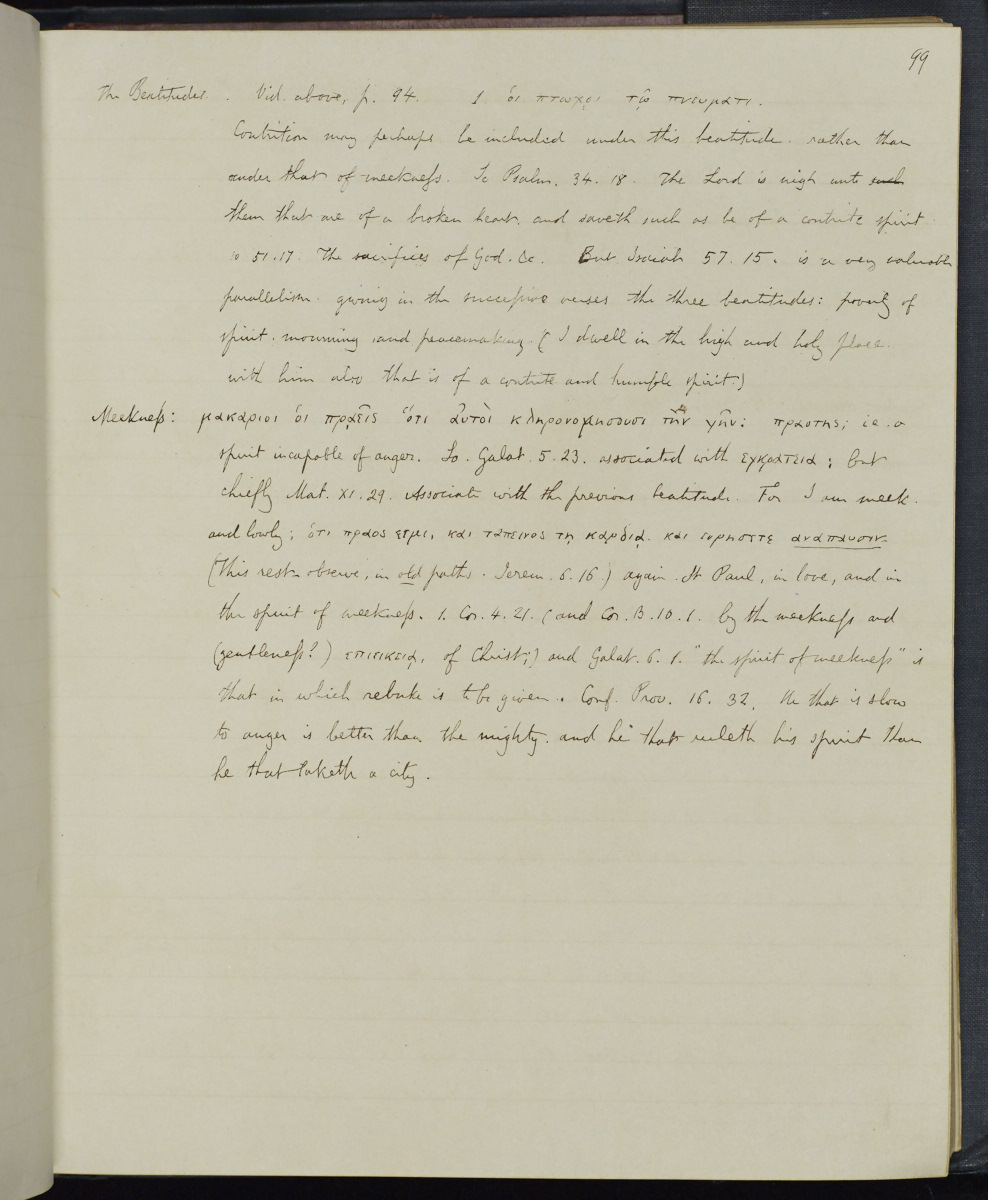 99
The Beatitudes. Vid. above, p. 94. 1 ὁι πτωχοι τῷ πνευματι.
Contrition may perhaps be included under this beatitude. rather than
under that of meekness. So Psalm. 34. 18. The Lord is nigh unto such
them that are of a broken heart, and saveth such as be of a contrite spirit
so 51.17. The sacrifices of God. &c. But Isaiah 57. 15. is a very valuable
parallelism. giving in the successive verses the three beatitudes: poverty of
spirit. mourning, and peacemaking. (I dwell in the high and holy place.
with him also that is of a contrite and humble spirit.)
Meekness: μακαριοι ὁι πρᾳεῖς ὅτι ἀυτὸι κληρονομησουσι τὴν γῆν: πρᾳοτης; i.e. a
spirit incapable of anger. So. Galat. 5. 23. associated with εγκρατεια; but
chiefly Mat. XI. 29. Associate with the previous beatitude. For I am meek.
and lowly; ὁτι πρᾳος ειμι, και ταπεινος τῃ καρδιᾳ. και ευρησετε αναπαυσιν.
(this rest observe, in old paths. Jerem. 6. 16.) again. St Paul, in love, and in
the spirit of meekness. 1. Cor. 4. 21. (and Cor. B. 10. 1. by the meekness and
(gentleness?) επιεικειᾳ, of Christ;) and Galat. 6. 1. "the spirit of meekness" is
that in which rebuke is to be given. Conf. Prov. 16. 32. He that is slow
to anger is better than the mighty. and he that ruleth his spirit than
he that taketh a city.